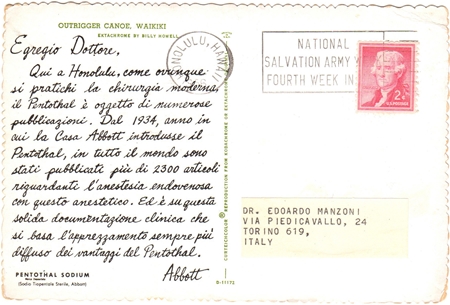 OUTRIGGER CANOE, WAIKIKI
EKTACHROME BY BILLY HOWELL
Egregio Dottore,
Qui a Honolulu, come ovunque
si pratichi la chirurgia moderna,
il Pentothal è oggetto di numerose
pubblicazioni. Dal 1934, anno in
cui la Casa Abbott introdusse il
Pentothal, in tutto il mondo sono
stati pubblicati più di 2300 articoli
riguardanti l'anestesia endovenosa
con questo anestetico. Ed è su questa
solida documentazione clinica che
si basa l'apprezzamento sempre più
diffuso dei vantaggi del Pentothal.
Abbott
PENTOTHAL SODIUM
(Sodio Tiopentale Sterile, Abbott)
HONOLULU, HAWAII
NATIONAL
SALVATION ARMY
FOURTH WEEK IN
2¢
DR. EDOARDO MANZONI
VIA PIEDICAVALLO, 24
TORINO 619,
ITALY